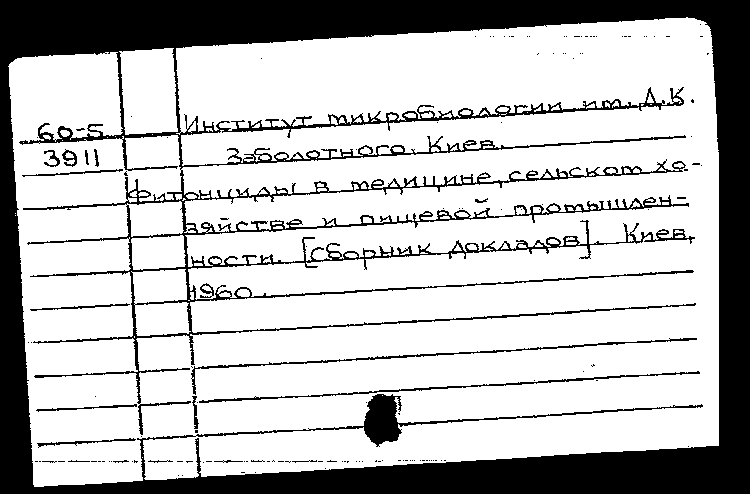 60-5 Институт микробиологии им. Д.К.
3911 Заболотного. Киев.
Фитонциды в медицине, сельском хо-
зяйстве и пищевой промышлен-
ности. [Сборник докладов]. Киев,
1960.